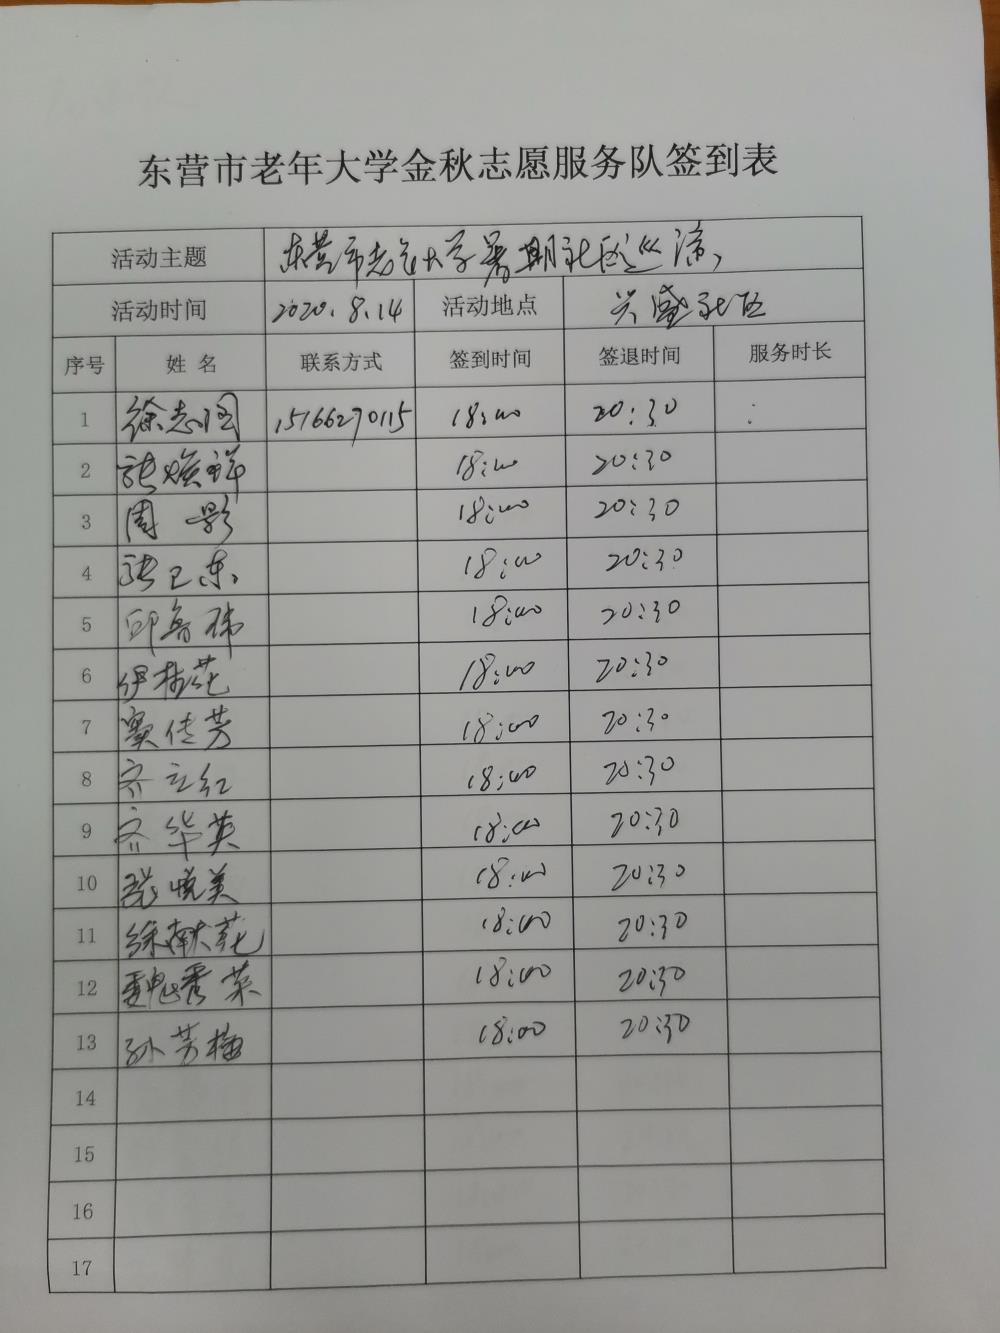 东营市老年大学金秋志愿服务队签到表
活动主题 东营市老年大学暑期社区巡演
活动时间 2020.8.14 活动地点 兴盛社区
序号 姓名 联系方式 签到时间 签退时间 服务时长
1 徐志国 15166270115 18:00 20:30 :
2 张焕祥 18:00 20:30
3 周影 18:00 20:30
4 张卫东 18:00 20:30
5 邱鲁伟 18:00 20:30
6 伊桂花 18:00 20:30
7 窦传芳 18:00 20:30
8 齐立红 18:00 20:30
9 齐华英 18:00 20:30
10 18:00 20:30
11 徐献花 18:00 20:30
12 魏秀菜 18:00 20:30
13 孙芳梅 18:00 20:30
14
15
16
17